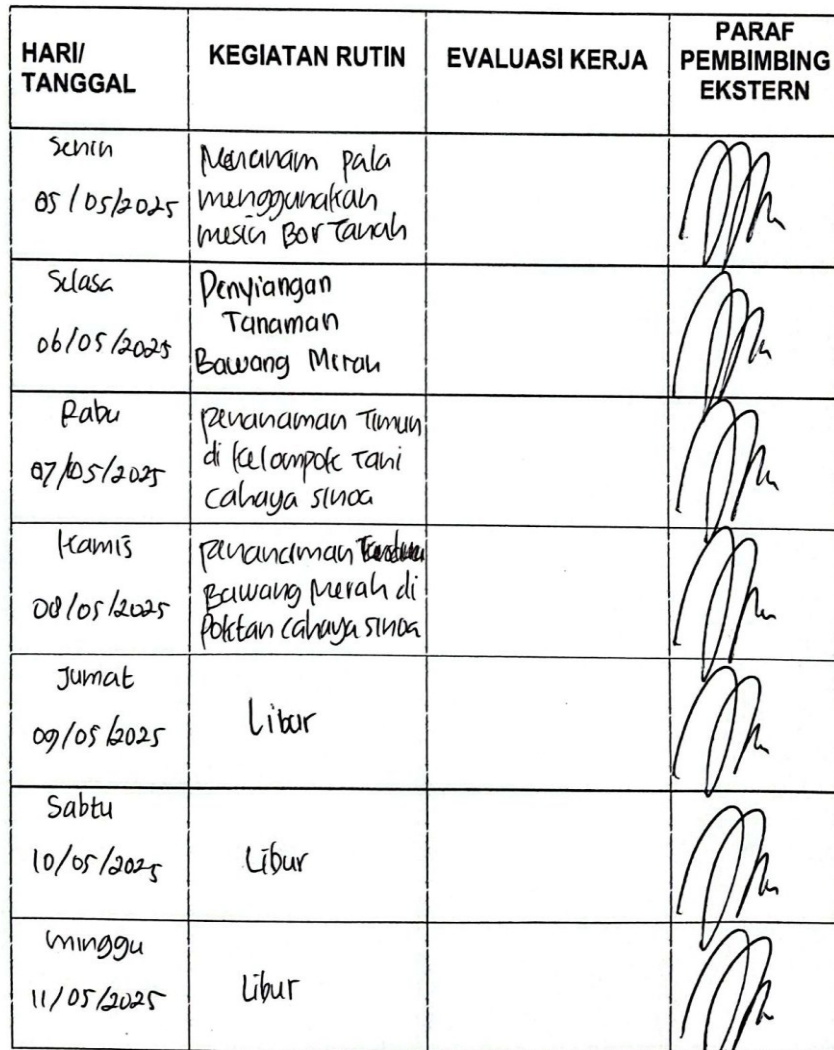 HARI/
TANGGAL
KEGIATAN RUTIN
EVALUASI KERJA
PARAF
PEMBIMBING
EKSTERN
Senin
05/05/2025
Menanam pala
menggunakan
mesin Bor Tanah
Selasa
06/05/2025
Penyiangan
Tanaman
Bawang Merah
Rabu
07/05/2025
penanaman Timun
di kelompok Tani
cahaya sinoa
Kamis
08/05/2025
penanaman
Bawang Merah di
Poktan cahaya sinoa
Jumat
09/05/2025
Libur
Sabtu
10/05/2025
Libur
minggu
11/05/2025
Libur